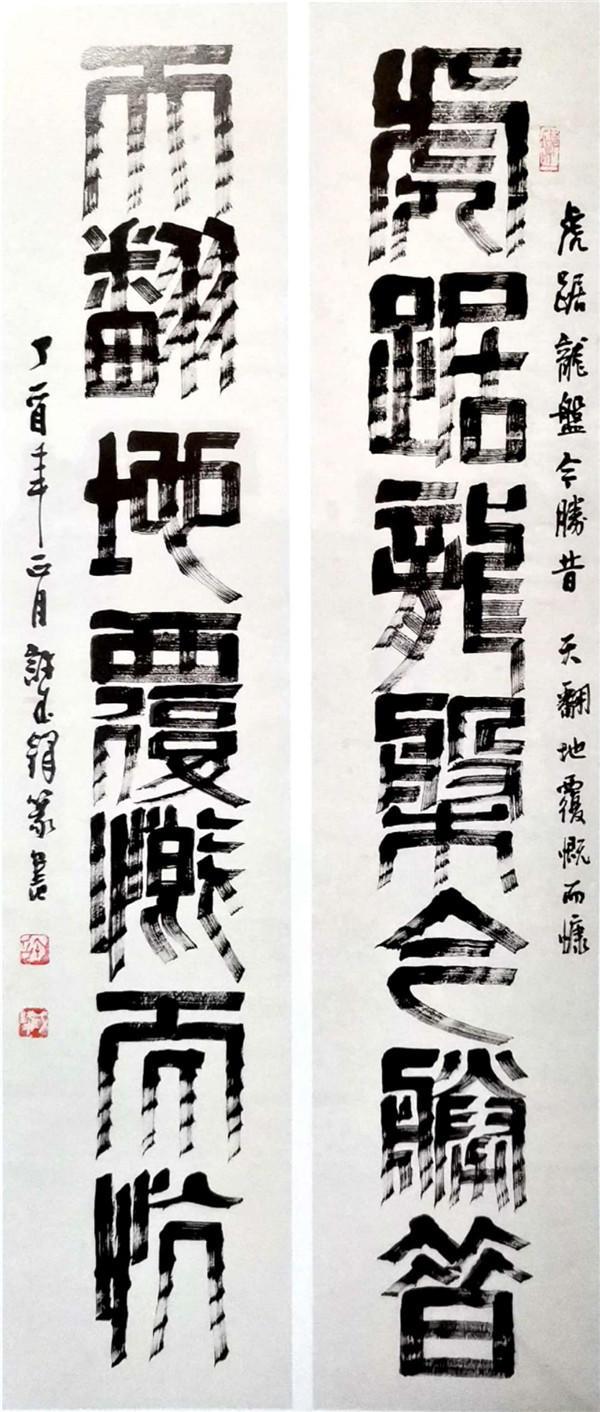 虎踞龍盤今勝昔 天翻地覆慨而慷
虎踞龍盤今勝昔
天翻地覆慨而忼
丁酉年正月篆書